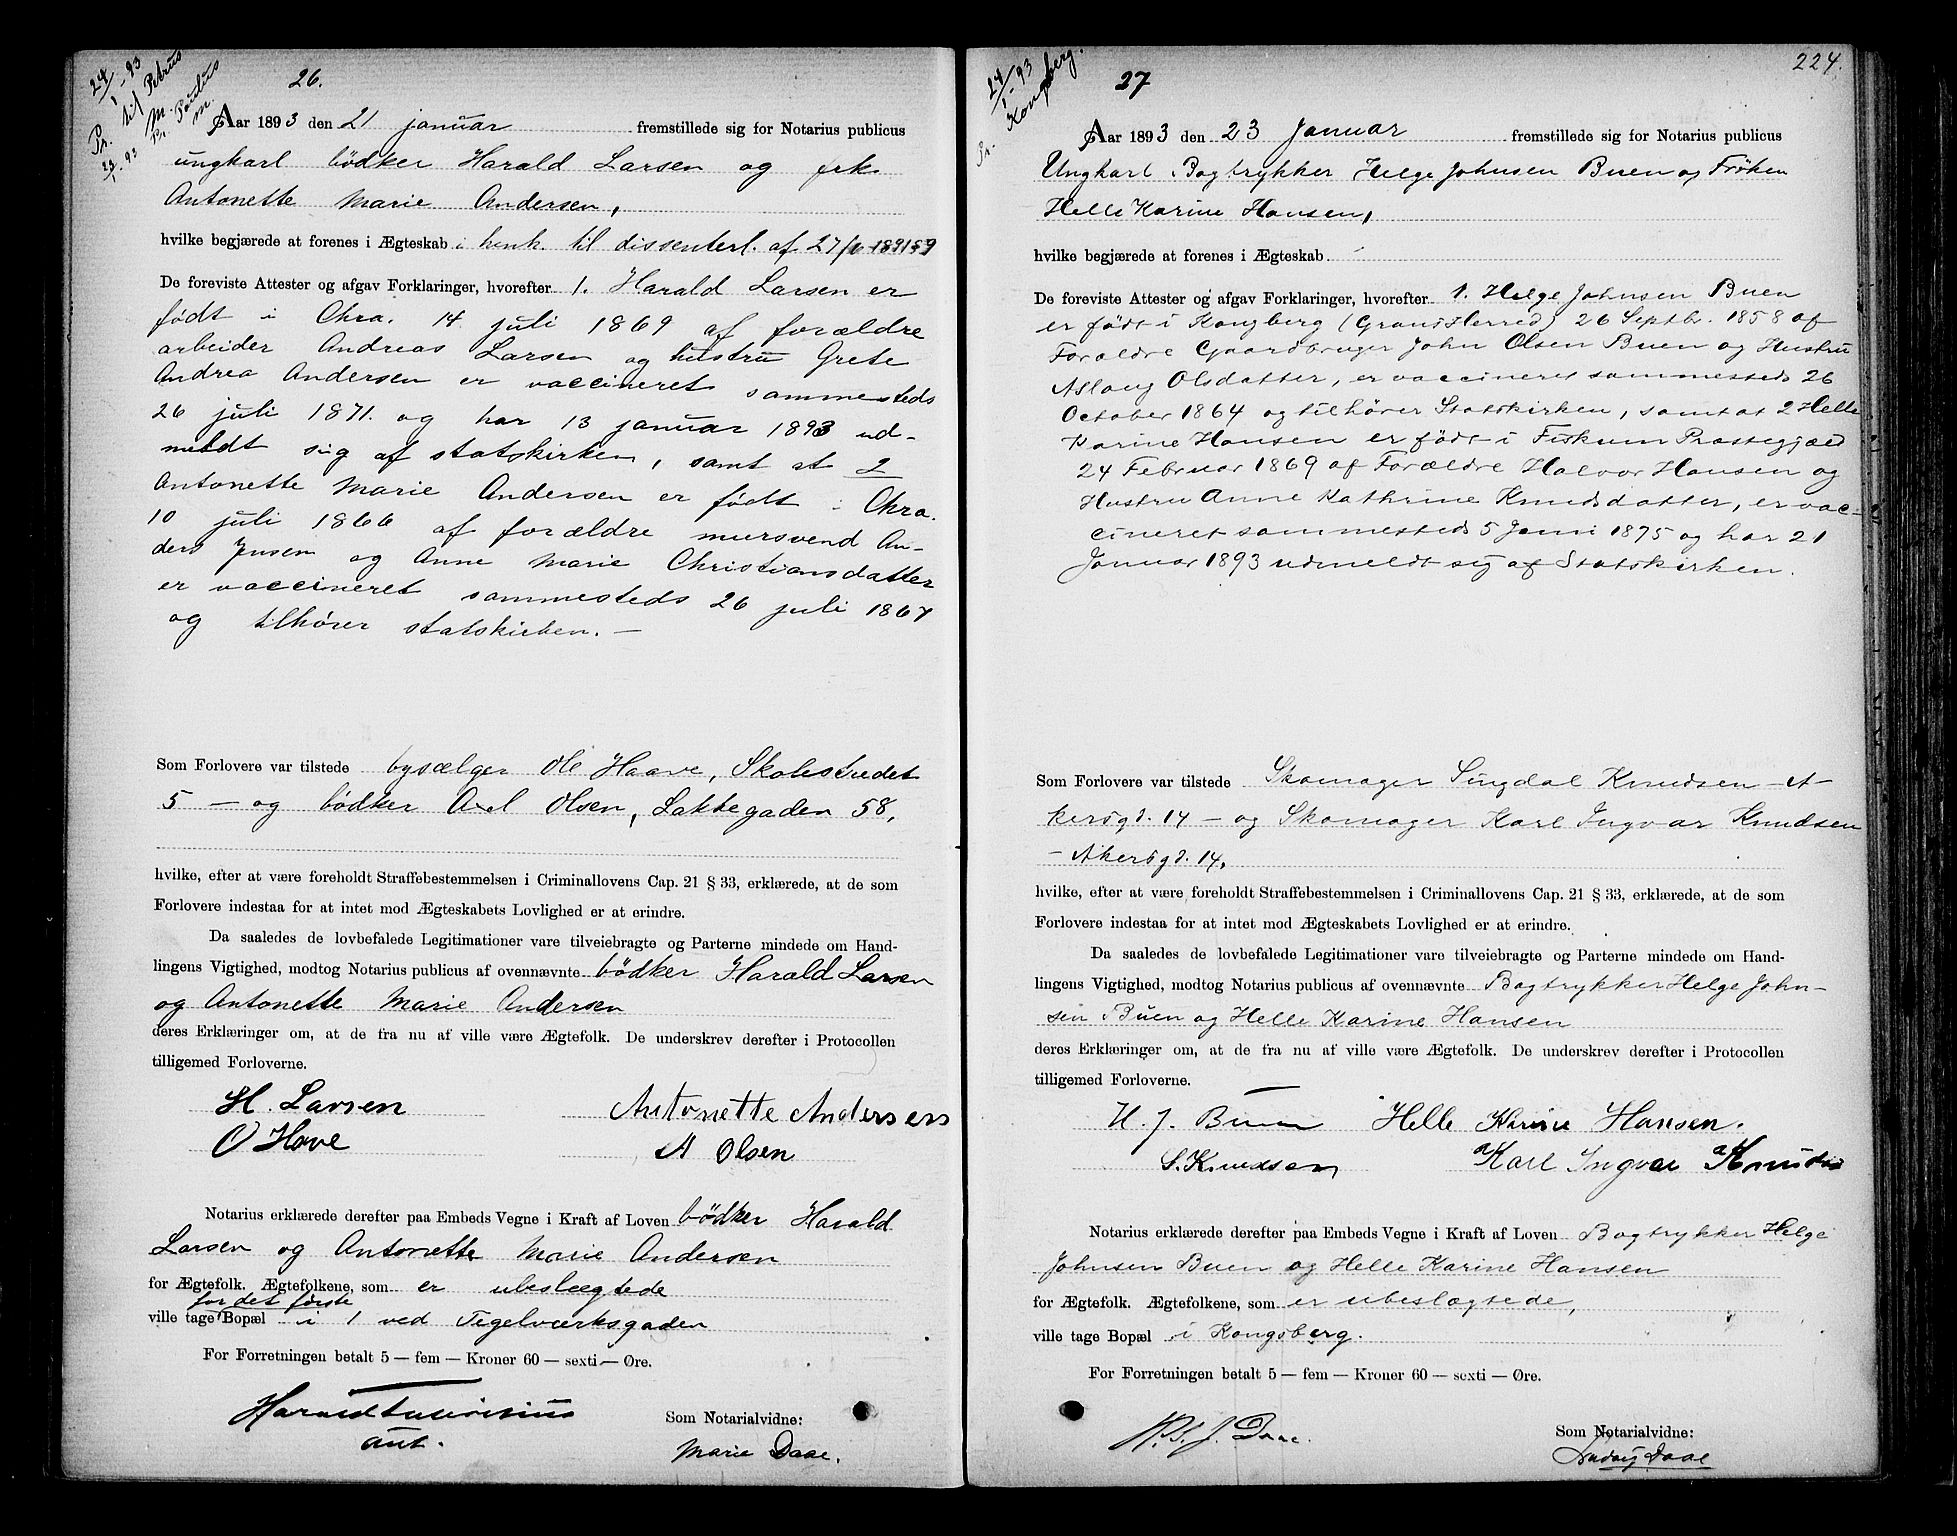 24/1-93
Pr. til Petrus M.
Pr. Paulus m.
26.
Aar 1893 den 21 januar fremstillede sig for Notarius publicus
ungkarl bödker Harald Larsen og frk
Antonette Marie Andersen,
hvilke begjærede at forenes i Ægteskab i henh. til dissenterl. af 27/6 1891 § 9
De foreviste Attester og afgav Forklaringer, hvorefter 1. Harald Larsen er
født i Chra. 14 juli 1869 af forældre
arbeider Andreas Larsen og hustru Grete
Andrea Andersen er vaccineret sammesteds
26 juli 1871. og har 13 januar 1893 ud-
meldt sig af statskirken, samt at 2
Antonette Marie Andersen er født i Chra.
10 juli 1866 af forældre mursvend An-
ders Jensen og Anne Marie Christiansdatter
er vaccineret sammesteds 26 juli 1867
og tilhører statskirken. —
Som Forlovere var tilstede bysælger Ole Haave, Skolestrædet
5 — og bödker Axel Olsen, Lakkegaden 58,
hvilke, efter at være foreholdt Straffebestemmelsen i Criminallovens Cap. 21 § 33, erklærede, at de som
Forlovere indestaa for at intet mod Ægteskabets Lovlighed er at erindre.
Da saaledes de lovbefalede Legitimationer vare tilveiebragte og Parterne mindede om Hand-
lingens Vigtighed, modtog Notarius publicus af ovennævnte bödker Harald Larsen
og Antonette Marie Andersen
deres Erklæringer om, at de fra nu af ville være Ægtefolk. De underskrev derefter i Protocollen
tilligemed Forloverne.
H. Larsen Antonette Andersen
O Hove A Olsen
Notarius erklærede derefter paa Embeds Vegne i Kraft af Loven bödker Harald
Larsen og Antonette Marie Andersen
for Ægtefolk. Ægtefolkene, som er ubeslægtede
for det første
ville tage Bopæl i 1 ved Tegelværksgaden
For Forretningen betalt 5 — fem — Kroner 60 — sexti — Øre.
aut.
Som Notarialvidne:
Marie Daae.
224.
24/1-93
Pr. Kongsberg.
27
Aar 1893 den 23 Januar fremstillede sig for Notarius publicus
Ungkarl Bogtrykker Helge Johnsen Buen og Frøken
Helle Karine Hansen,
hvilke begjærede at forenes i Ægteskab
De foreviste Attester og afgav Forklaringer, hvorefter 1. Helge Johnsen Buen
er født i Kongberg (Grans Herred) 26 Septbr. 1858 af
Forældre Gaardbruger John Olsen Buen og Hustru
Aslaug Olsdatter, er vaccineret sammesteds 26
October 1864 og tilhører Statskirken, samt at 2 Helle
Karine Hansen er født i Fiskum Præstegjæld
24 Februar 1869 af Forældre Halvor Hansen og
Hustru Anne Kathrine Knudsdatter, er vac-
cineret sammesteds 5 Juni 1875 og har 21
Januar 1893 udmeldt sig af Statskirken.
Som Forlovere var tilstede Skomager Singdal Knudsen — A-
kersgd. 14 — og Skomager Karl Ingvar Knudsen
— Akersgd. 14,
hvilke, efter at være foreholdt Straffebestemmelsen i Criminallovens Cap. 21 § 33, erklærede, at de som
Forlovere indestaa for at intet mod Ægteskabets Lovlighed er at erindre.
Da saaledes de lovbefalede Legitimationer vare tilveiebragte og Parterne mindede om Hand-
lingens Vigtighed, modtog Notarius publicus af ovennævnte Bogtrykker Helge John-
sen Buen og Helle Karine Hansen
deres Erklæringer om, at de fra nu af ville være Ægtefolk. De underskrev derefter i Protocollen
tilligemed Forloverne.
H. J. Buen Helle Karine Hansen.
S. Knudsen Karl Ingvar Knudsen
Notarius erklærede derefter paa Embeds Vegne i Kraft af Loven Bogtrykker Helge
Johnsen Buen og Helle Karine Hansen
for Ægtefolk. Ægtefolkene, som er ubeslægtede,
ville tage Bopæl i Kongsberg.
For Forretningen betalt 5 — fem — Kroner 60 — sexti — Øre.
Daae.
Som Notarialvidne:
Daae